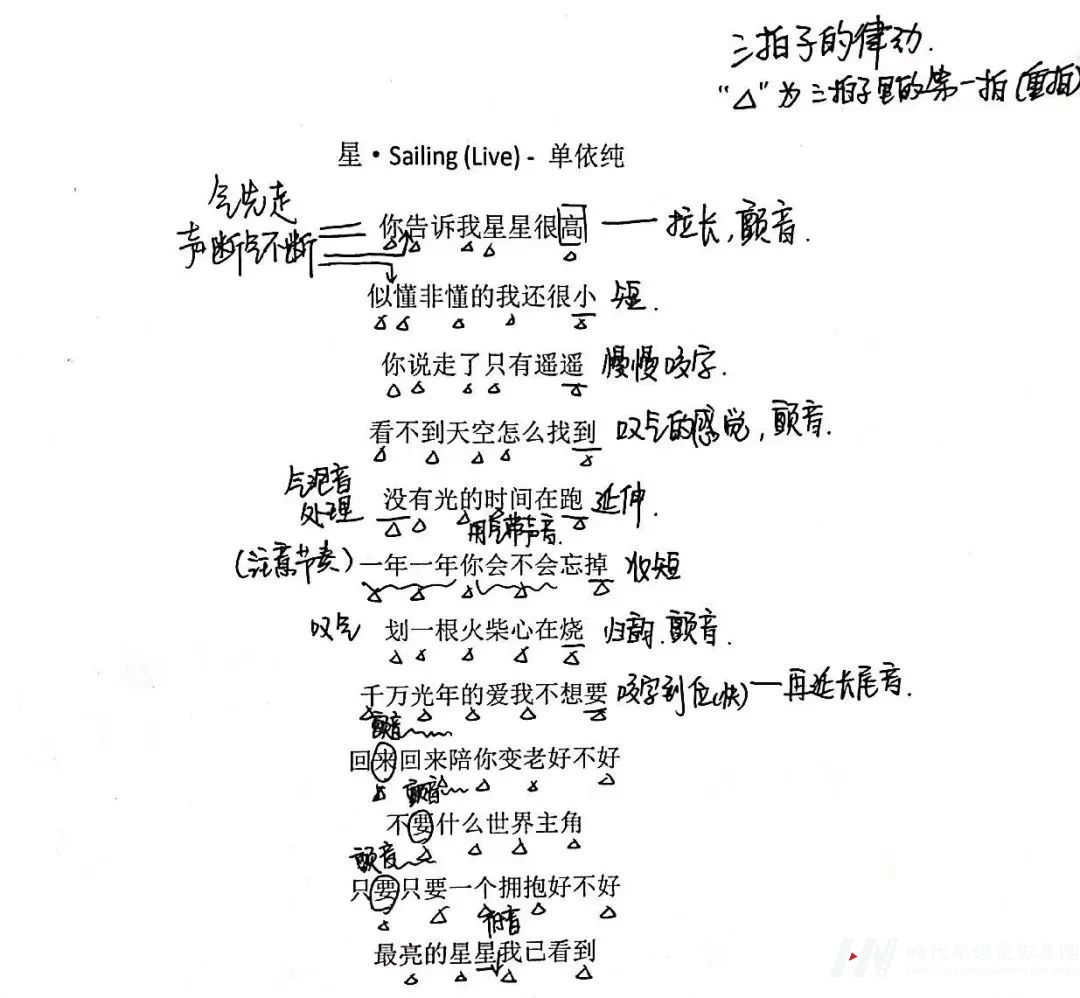 三拍子的律动.
“△”为三拍子里的第一拍(重拍)
星·Sailing (Live) - 单依纯
气先走
声断气不断
你告诉我星星很高 — 拉长,颤音.
似懂非懂的我还很小 短.
你说走了只有遥遥 慢慢咬字.
看不到天空怎么找到 叹气的感觉,颤音.
气泡音
处理
没有光的时间在跑 延伸.
用气带声音.
(注意节奏) 一年一年你会不会忘掉 收短
叹气 划一根火柴心在烧 归韵.颤音.
千万光年的爱我不想要 咬字到位(快)—再延长尾音.
颤音
回来回来陪你变老好不好
颤音
不要什么世界主角
颤音
只要只要一个拥抱好不好
最亮的星星我已看到
時代華媒電影集團